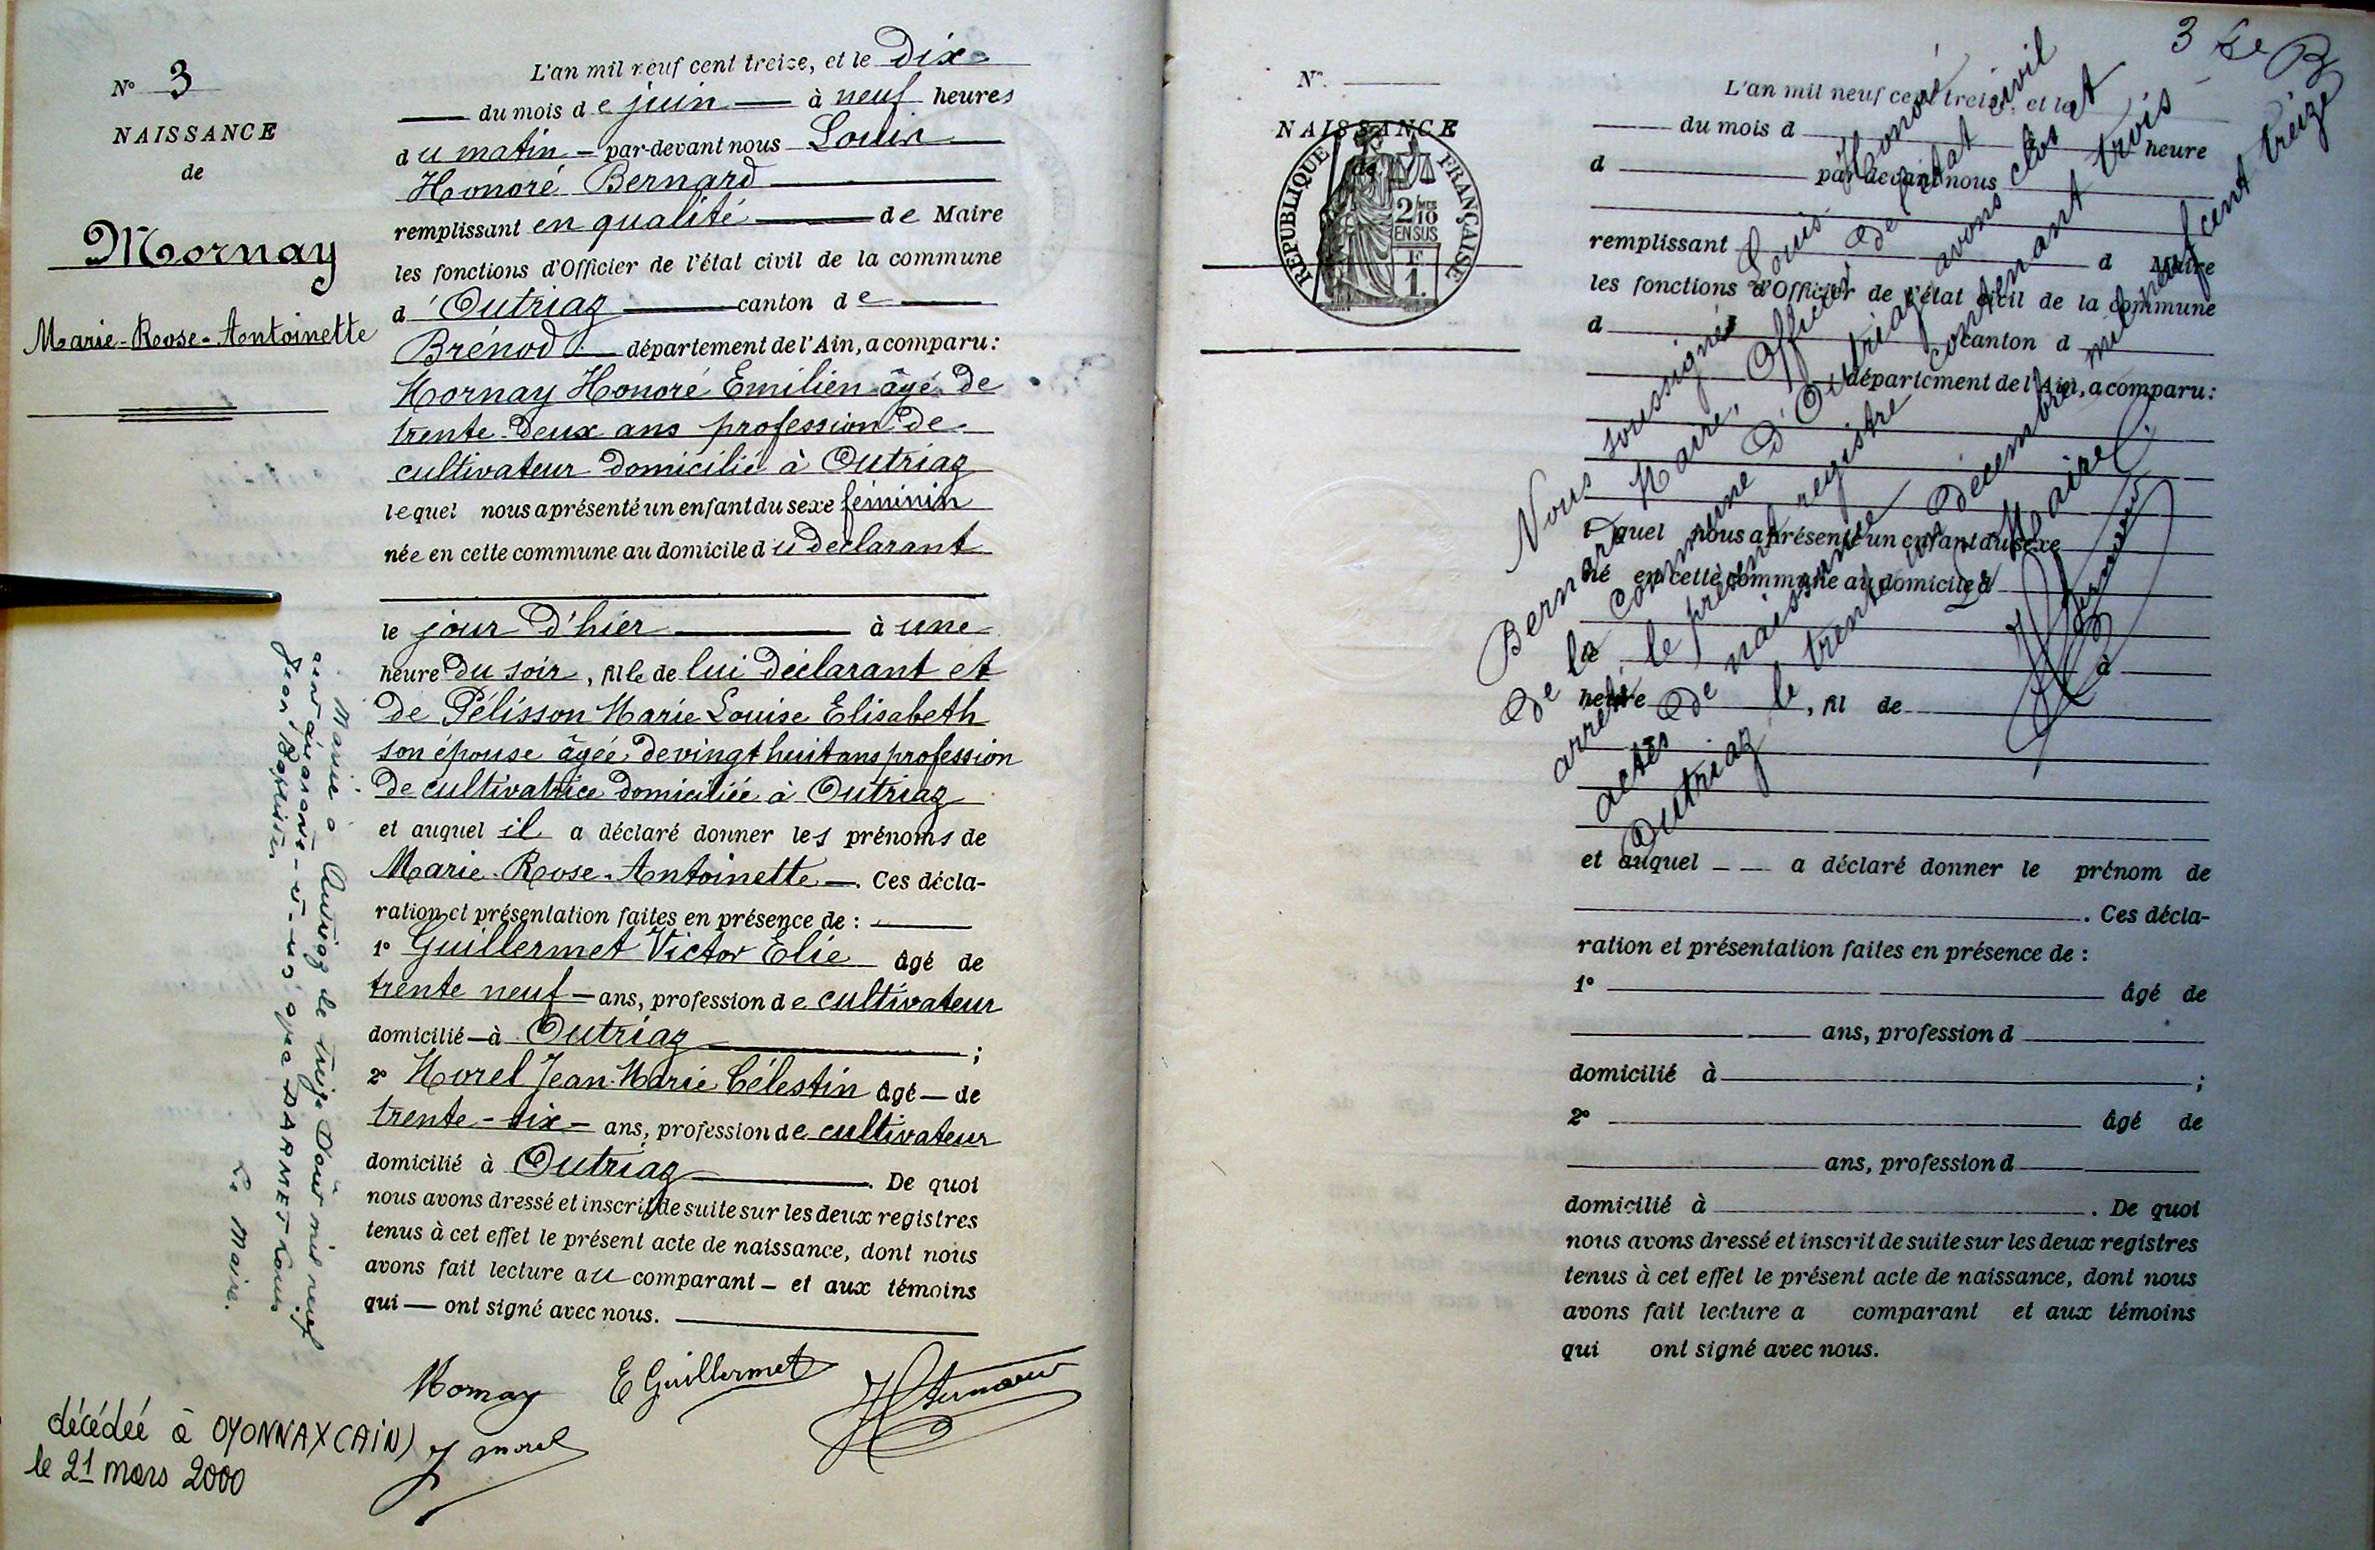 N° 3
NAISSANCE
de
Mornay
Marie-Rose-Antoinette
L'an mil neuf cent treize, et le dix
du mois de juin à neuf heures
du matin par-devant nous Louis
Honoré Bernard
remplissant en qualité de Maire
les fonctions d'Officier de l'état civil de la commune
d'Outriaz canton de
Brénod département de l'Ain, a comparu :
Mornay Honoré Emilien âgé de
trente-deux ans profession de
cultivateur domicilié à Outriaz
lequel nous a présenté un enfant du sexe féminin
née en cette commune au domicile du déclarant
le jour d'hier à une
heure du soir, fille de lui déclarant et
de Pélisson Marie Louise Elisabeth
son épouse âgée de vingt huit ans profession
de cultivatrice domiciliée à Outriaz
et auquel il a déclaré donner les prénoms de
Marie-Rose-Antoinette. Ces décla-
ration et présentation faites en présence de :
1° Guillermet Victor Elie âgé de
trente neuf ans, profession de cultivateur
domicilié à Outriaz ;
2° Morel Jean-Marie Célestin âgé de
trente-six ans, profession de cultivateur
domicilié à Outriaz. De quoi
nous avons dressé et inscrit de suite sur les deux registres
tenus à cet effet le présent acte de naissance, dont nous
avons fait lecture au comparant et aux témoins
qui ont signé avec nous.
Mornay E Guillermet H Bernard
J morel
Marié à Outriaz le treize Août mil neuf
cent avec DARMET Louis
Jean Baptiste
Le Maire.
décédée à OYONNAX (AIN)
le 21 mars 2000
3 Le B
N°
NAISSANCE
de
REPUBLIQUE FRANÇAISE
2/10
EN SUS
1F
L'an mil neuf cent treize, et le
du mois d heure
d par-devant nous
remplissant d Maire
les fonctions d'Officier de l'état civil de la commune
d canton d
département de l'Ain, a comparu :
l quel nous a présenté un enfant du sexe
né en cette commune au domicile d
le à
heure , fil de
et auquel a déclaré donner le prénom de
. Ces décla-
ration et présentation faites en présence de :
1° âgé de
ans, profession d
domicilié à ;
2° âgé de
ans, profession d
domicilié à . De quoi
nous avons dressé et inscrit de suite sur les deux registres
tenus à cet effet le présent acte de naissance, dont nous
avons fait lecture a comparant et aux témoins
qui ont signé avec nous.
Nous soussigné Louis Honoré
Bernard Maire, Officier de l'état civil
de la commune d'Outriaz avons clos et
arrêté le présent registre contenant trois
actes de naissance
Outriaz le trente un décembre mil neuf cent treize
Le Maire
H Bernard